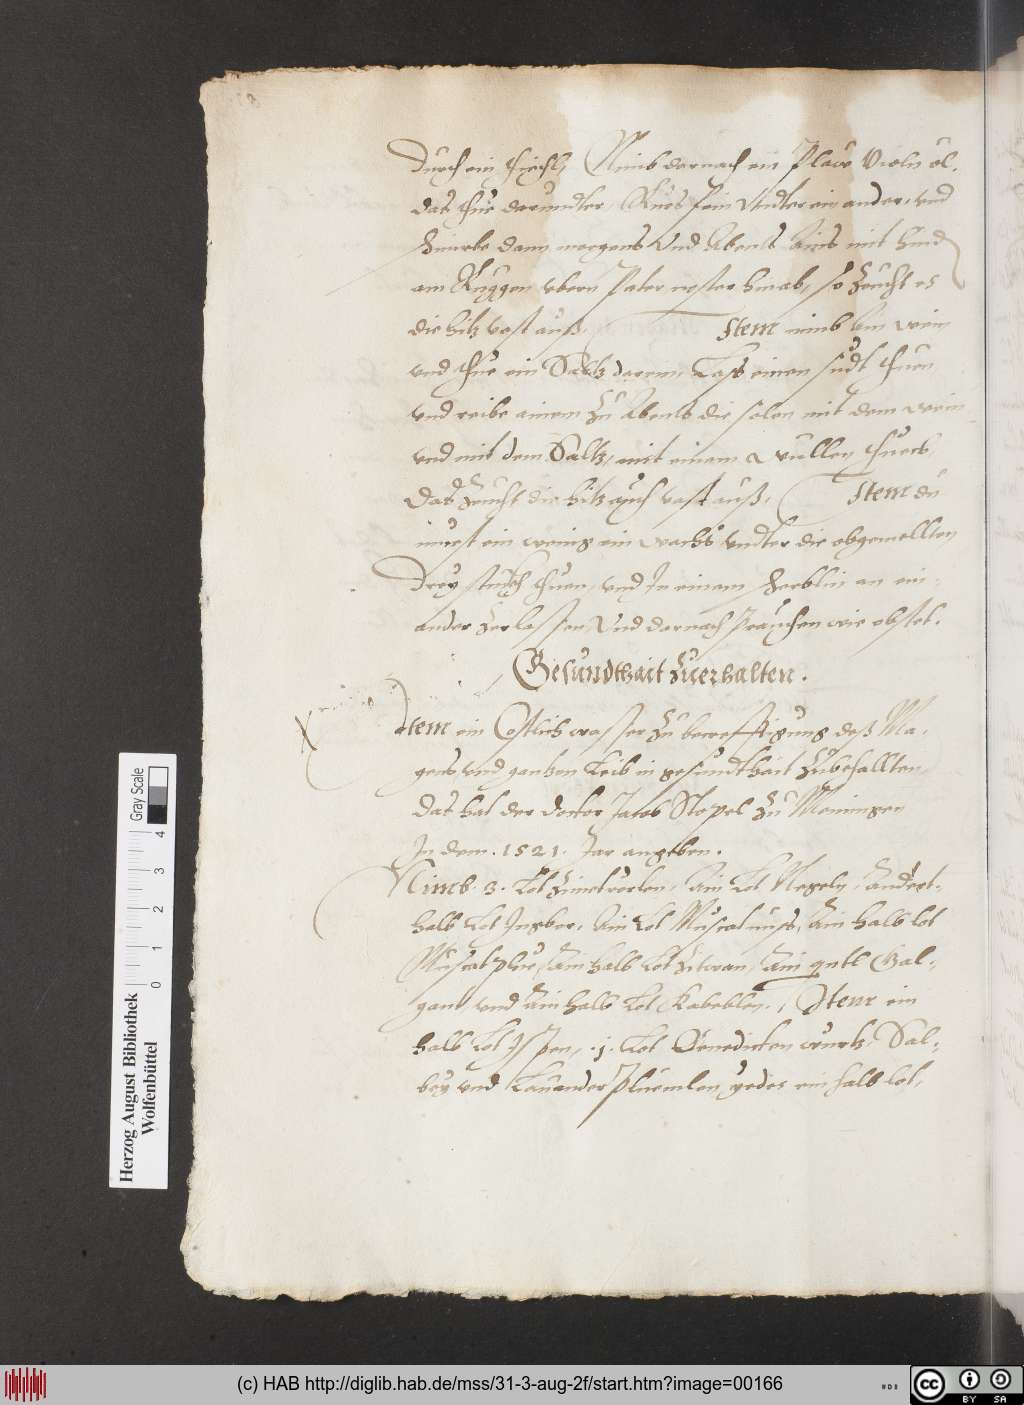 durch ein thiechl, Nimb darnach ein Plaw Violn öl.
das thue darundter, Ruers fein Vndter ein ander, vnd
Schmirbe dann morgens Vnd Abents Ains mit hind
am Ruggen vbern Pater noster hinab, so Zeucht es
die hitz vast auß. Item nimb Ain wein
vnd thue ein Saltz darein, Lass einen sudt thuen
vnd reibe ainem Zu Abents die solen mit dem wein
vnd mit dem Saltz, mit einem wullen thuech,
Das Zeucht die hitz auch vast auß, Item du
muest ein wenig ein wachs vndter die obgemellten
Drey stuckh thuen, vnd In einem Scherblin an ein-
ander Zerlassen, Vnd darnach Prauchen wie obstet.
Gesundthait Zuerhalten.
Item ein Costlich wasser Zu becrefftigung deß Ma-
gens, vnd gantzen Leib in gesundthait Zubehallten
das hat der doctor Jacob Stopel Zu Memingen
In dem .1521. Jar angeben.
Nimb .3. Lot Zimetrörlen, Ain Lot Negely, Andert-
halb Lot Ingber, Ain Lot Muscatnuss, Ain halb lot
Muscatplüe, Ain halb Lot Zitwan, Ain qntl Gal-
gant, vnd Ain halb Lot Kabeblen, Item ein
halb Lot Ispen, .j. Lot Benedicten wurtz, Sal-
bey vnd Lauander Pluemlen yedes ein halb lot,
Herzog August Bibliothek
Wolfenbüttel
0 1 2 3 4
Gray Scale
(c) HAB http://diglib.hab.de/mss/31-3-aug-2f/start.htm?image=00166
WDB
cc BY SA